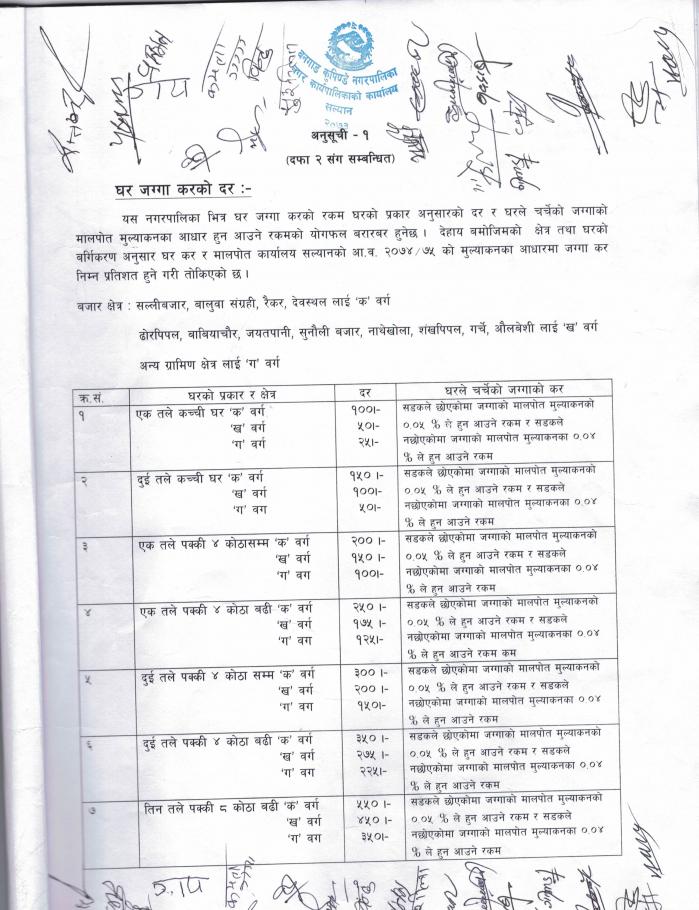 बनगाड कुपिण्डे नगरपालिका
नगर कार्यपालिकाको कार्यालय
सल्यान
२०७३
अनुसूची - १
(दफा २ संग सम्बन्धित)
घर जग्गा करको दर :-
यस नगरपालिका भित्र घर जग्गा करको रकम घरको प्रकार अनुसारको दर र घरले चर्चेको जग्गाको
मालपोत मुल्याकनका आधार हुन आउने रकमको योगफल बराबर हुनेछ । देहाय बमोजिमको क्षेत्र तथा घरको
बर्गिकरण अनुसार घर कर र मालपोत कार्यालय सल्यानको आ.व. २०७४/७५ को मुल्याकनका आधारमा जग्गा कर
निम्न प्रतिशत हुने गरी तोकिएको छ ।
बजार क्षेत्र : सल्लीबजार, बालुवा संग्रही, रैकर, देवस्थल लाई 'क' वर्ग
ढोरपिपल, बाबियाचौर, जयतपानी, सुनौली बजार, नाथेखोला, शंखपिपल, गर्चे, औलबेशी लाई 'ख' वर्ग
अन्य ग्रामिण क्षेत्र लाई 'ग' वर्ग
क्र.सं. घरको प्रकार र क्षेत्र दर घरले चर्चेको जग्गाको कर
१ एक तले कच्ची घर 'क' वर्ग १००।- सडकले छोएकोमा जग्गाको मालपोत मुल्याकनको
'ख' वर्ग ५०।- ०.०५ % ले हुन आउने रकम र सडकले
'ग' वर्ग २५।- नछोएकोमा जग्गाको मालपोत मुल्याकनका ०.०४
% ले हुन आउने रकम
२ दुई तले कच्ची घर 'क' वर्ग १५० ।- सडकले छोएकोमा जग्गाको मालपोत मुल्याकनको
'ख' वर्ग १००।- ०.०५ % ले हुन आउने रकम र सडकले
'ग' वर्ग ५०।- नछोएकोमा जग्गाको मालपोत मुल्याकनका ०.०४
% ले हुन आउने रकम
३ एक तले पक्की ४ कोठासम्म 'क' वर्ग २०० ।- सडकले छोएकोमा जग्गाको मालपोत मुल्याकनको
'ख' वर्ग १५० ।- ०.०५ % ले हुन आउने रकम र सडकले
'ग' वग १००।- नछोएकोमा जग्गाको मालपोत मुल्याकनका ०.०४
% ले हुन आउने रकम
४ एक तले पक्की ४ कोठा बढी 'क' वर्ग २५० ।- सडकले छोएकोमा जग्गाको मालपोत मुल्याकनको
'ख' वर्ग १७५ ।- ०.०५ % ले हुन आउने रकम र सडकले
'ग' वर्ग १२५।- नछोएकोमा जग्गाको मालपोत मुल्याकनका ०.०४
% ले हुन आउने रकम कम
५ दुई तले पक्की ४ कोठा सम्म 'क' वर्ग ३०० ।- सडकले छोएकोमा जग्गाको मालपोत मुल्याकनको
'ख' वर्ग २०० ।- ०.०५ % ले हुन आउने रकम र सडकले
'ग' वर्ग १५०।- नछोएकोमा जग्गाको मालपोत मुल्याकनका ०.०४
% ले हुन आउने रकम
६ दुई तले पक्की ४ कोठा बढी 'क' वर्ग ३५० ।- सडकले छोएकोमा जग्गाको मालपोत मुल्याकनको
'ख' वर्ग २७५ ।- ०.०५ % ले हुन आउने रकम र सडकले
'ग' वग २२५।- नछोएकोमा जग्गाको मालपोत मुल्याकनका ०.०४
% ले हुन आउने रकम
७ तिन तले पक्की ८ कोठा बढी 'क' वर्ग ५५० ।- सडकले छोएकोमा जग्गाको मालपोत मुल्याकनको
'ख' वर्ग ४५० ।- ०.०५ % ले हुन आउने रकम र सडकले
'ग' वर्ग ३५०।- नछोएकोमा जग्गाको मालपोत मुल्याकनका ०.०४
% ले हुन आउने रकम